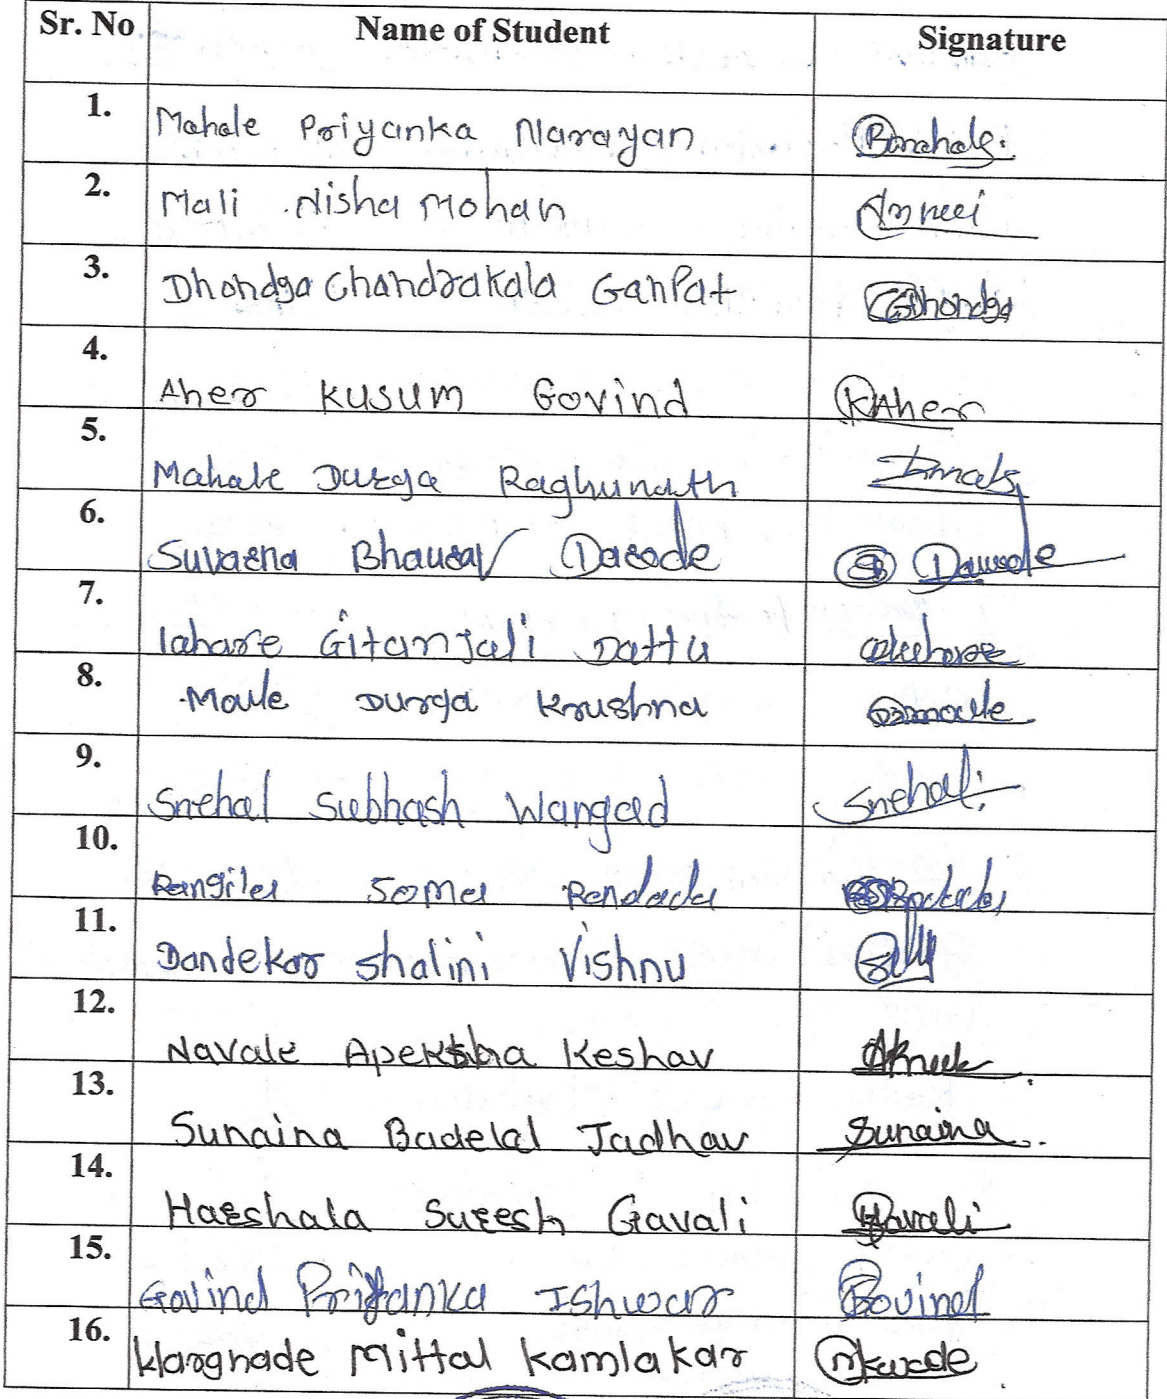 Sr. No Name of Student Signature
1. Mahale Priyanka Narayan
2. Mali Nisha Mohan
3. Dhondga Chandrakala Ganpat Dhondga
4. Aher Kusum Govind KAher
5. Mahale Durga Raghunath
6. Suvarna Bhausav Darode
7. lahare Gitanjali Dattu
8. Maule Durga Krushna
9. Snehal Subhash Wangad Snehal
10. Rangila Soma Randada
11. Dandekar Shalini Vishnu
12. Navale Apeksha Keshav
13. Sunaina Badelal Jadhav Sunaina
14. Harshala Suresh Gavali Gavali
15. Govind Priyanka Ishwar Govind
16. Mittal Kamlakar